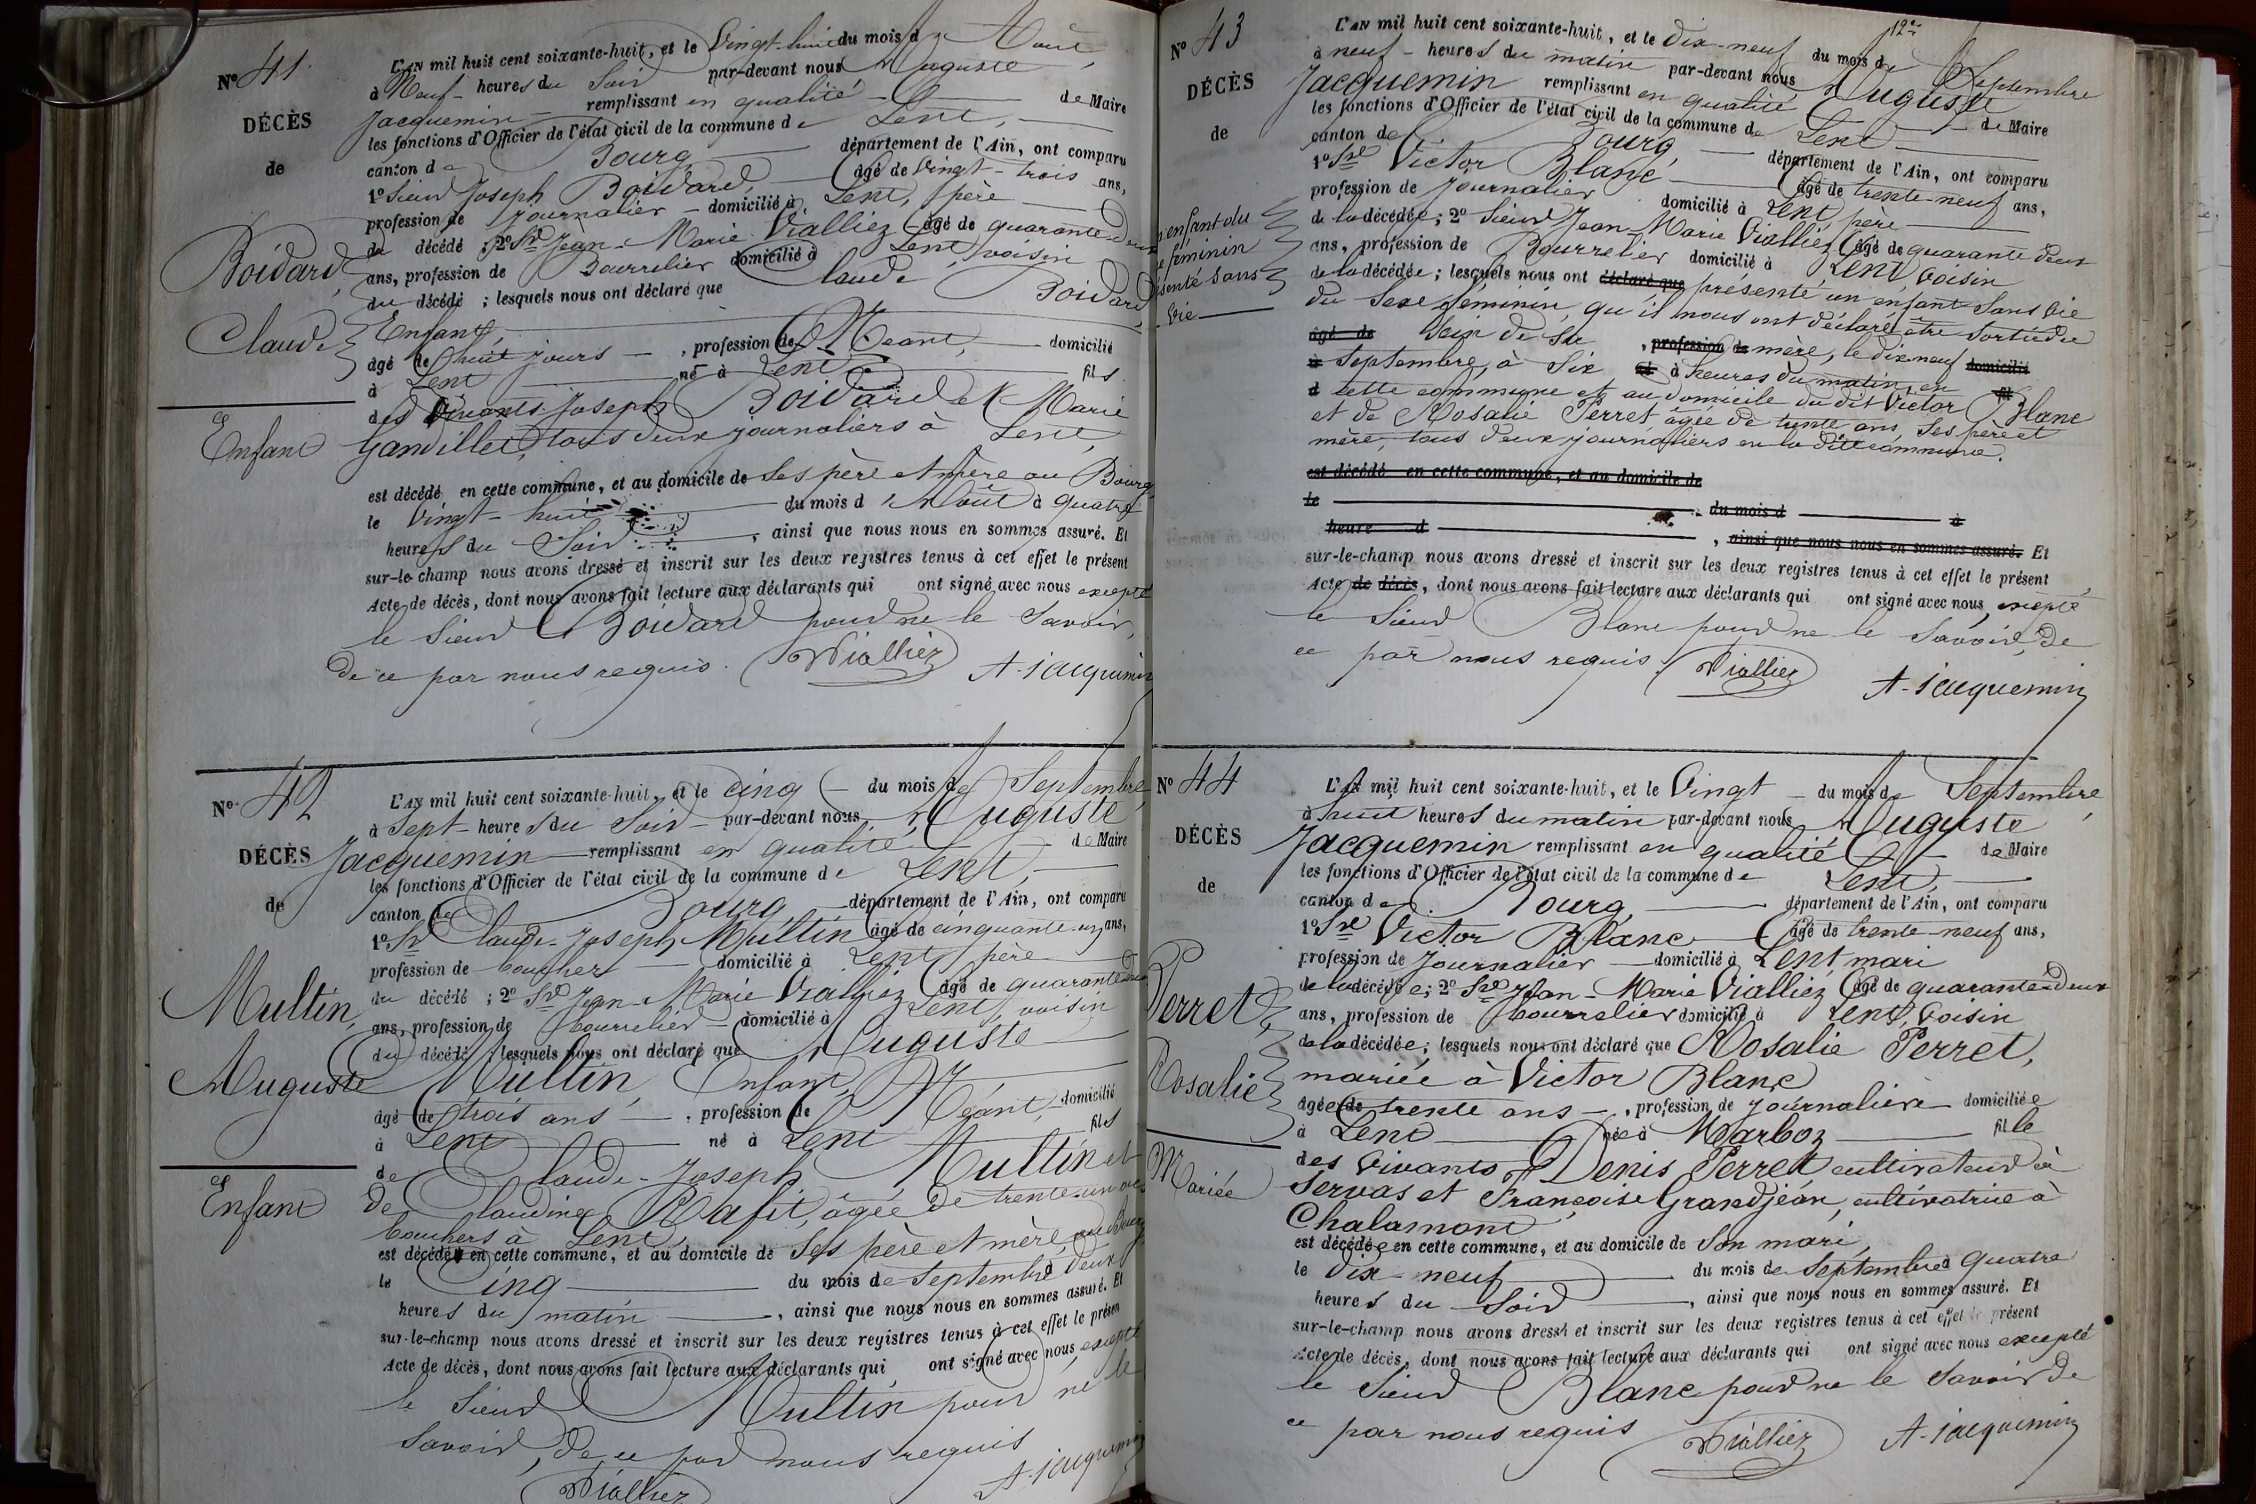 N° 41.
DÉCÈS
de
Boidard,
Claude
Enfant
L'AN mil huit cent soixante-huit, et le Vingt-huit du mois d'Août
à Neuf heures du Soir par-devant nous Auguste
Jacquemin remplissant en qualité de Maire
les fonctions d'Officier de l'état civil de la commune de Lent,
canton de Bourg département de l'Ain, ont comparu
1° Sieur Joseph Boidard, âgé de Vingt-trois ans,
profession de Journalier domicilié à Lent, père
du décédé ; 2° Sr Jean-Marie Vialliez âgé de quarante-deux
ans, profession de Bourrelier domicilié à Lent, voisin
du décédé ; lesquels nous ont déclaré que Claude Boidard,
Enfant,
âgé de huit jours , profession de Néant, domicilié
à Lent né à Lent fils
des Vivants Joseph Boidard et Marie
Gandillet, tous deux journaliers à Lent,
est décédé en cette commune, et au domicile de Ses père et mère au Bourg,
le Vingt-huit du mois d'Août à quatre
heures du Soir , ainsi que nous nous en sommes assuré. Et
sur-le-champ nous avons dressé et inscrit sur les deux registres tenus à cet effet le présent
Acte de décès, dont nous avons fait lecture aux déclarants qui ont signé avec nous excepté
le Sieur Boidard pour ne le Savoir,
de ce par nous requis. Vialliez A. Jacquemin
N° 42
DÉCÈS
de
Multin,
Auguste
Enfant
L'AN mil huit cent soixante-huit, et le Cinq du mois de Septembre,
à Sept heures du Soir par-devant nous Auguste
Jacquemin remplissant en qualité de Maire
les fonctions d'Officier de l'état civil de la commune de Lent,
canton de Bourg département de l'Ain, ont comparu
1° Sr Claude-Joseph Multin âgé de cinquante-un ans,
profession de boucher domicilié à Lent père
du décédé ; 2° Sr Jean-Marie Vialliez âgé de quarante-deux
ans, profession de bourrelier domicilié à Lent, voisin
du décédé lesquels nous ont déclaré que Auguste
Multin, Enfant,
âgé de trois ans , profession de Néant, domicilié
à Lent né à Lent fils
de Claude-Joseph Multin et
de Claudine Rafit, âgée de trente-un ans
bouchers à Lent,
est décédé en cette commune, et au domicile de Ses père et mère, au Bourg
le Cinq du mois de Septembre à Deux
heures du matin , ainsi que nous nous en sommes assuré. Et
sur-le-champ nous avons dressé et inscrit sur les deux registres tenus à cet effet le présent
Acte de décès, dont nous avons fait lecture aux déclarants qui ont signé avec nous excepté
le Sieur Multin pour ne le
Savoir, de ce par nous requis
Vialliez A. Jacquemin
12e
N° 43
DÉCÈS
de
enfant du
féminin
présenté sans
vie
L'AN mil huit cent soixante-huit, et le dix-neuf du mois de Septembre
à neuf heures du matin par-devant nous Auguste
Jacquemin remplissant en qualité de Maire
les fonctions d'Officier de l'état civil de la commune de Lent
canton de Bourg, département de l'Ain, ont comparu
1° Sr Victor Blanc âgé de trente-neuf ans,
profession de Journalier domicilié à Lent père
de la décédée ; 2° Sieur Jean-Marie Vialliez âgé de quarante deux
ans, profession de Bourrelier domicilié à Lent, Voisin
de la décédée ; lesquels nous ont déclaré que présenté un enfant Sans vie
du Sexe féminin, qu'il nous ont déclaré être Sorti du
âgé de Sein de Sa , profession de mère, le dix neuf domicilié
à Septembre, à Six né à heures du matin, en fil
d cette commune et au domicile du dit Victor Blanc
et de Rosalie Perret âgée de trente ans, Ses père et
mère, tous deux journaliers en la ditte commune.
est décédé en cette commune, et au domicile de
le du mois d à
heure d , ainsi que nous nous en sommes assuré. Et
sur-le-champ nous avons dressé et inscrit sur les deux registres tenus à cet effet le présent
Acte de décès, dont nous avons fait lecture aux déclarants qui ont signé avec nous, excepté
le Sieur Blanc pour ne le Savoir, de
ce par nous requis. Vialliez A. Jacquemin
N° 44
DÉCÈS
de
Perret
Rosalie
Mariée
L'AN mil huit cent soixante-huit, et le Vingt du mois de Septembre,
à huit heures du matin par-devant nous Auguste
Jacquemin remplissant en qualité de Maire
les fonctions d'Officier de l'état civil de la commune de Lent,
canton de Bourg département de l'Ain, ont comparu
1° Sr Victor Blanc âgé de trente-neuf ans,
profession de Journalier domicilié à Lent mari
de la décédée ; 2° Sr Jean-Marie Vialliez âgé de quarante-deux
ans, profession de bourrelier domicilié à Lent, Voisin
de la décédée ; lesquels nous ont déclaré que Rosalie Perret,
mariée à Victor Blanc
âgée de trente ans , profession de journalière domiciliée
à Lent née à Marboz fille
des Vivants Denis Perret cultivateur à
Servas et Françoise Grandjean, cultivatrice à
Chalamont
est décédée en cette commune, et au domicile de Son mari,
le dix-neuf du mois de Septembre à Quatre
heures du Soir , ainsi que nous nous en sommes assuré. Et
sur-le-champ nous avons dressé et inscrit sur les deux registres tenus à cet effet le présent
Acte de décès, dont nous avons fait lecture aux déclarants qui ont signé avec nous excepté
le Sieur Blanc pour ne le Savoir de
ce par nous requis Vialliez A. Jacquemin